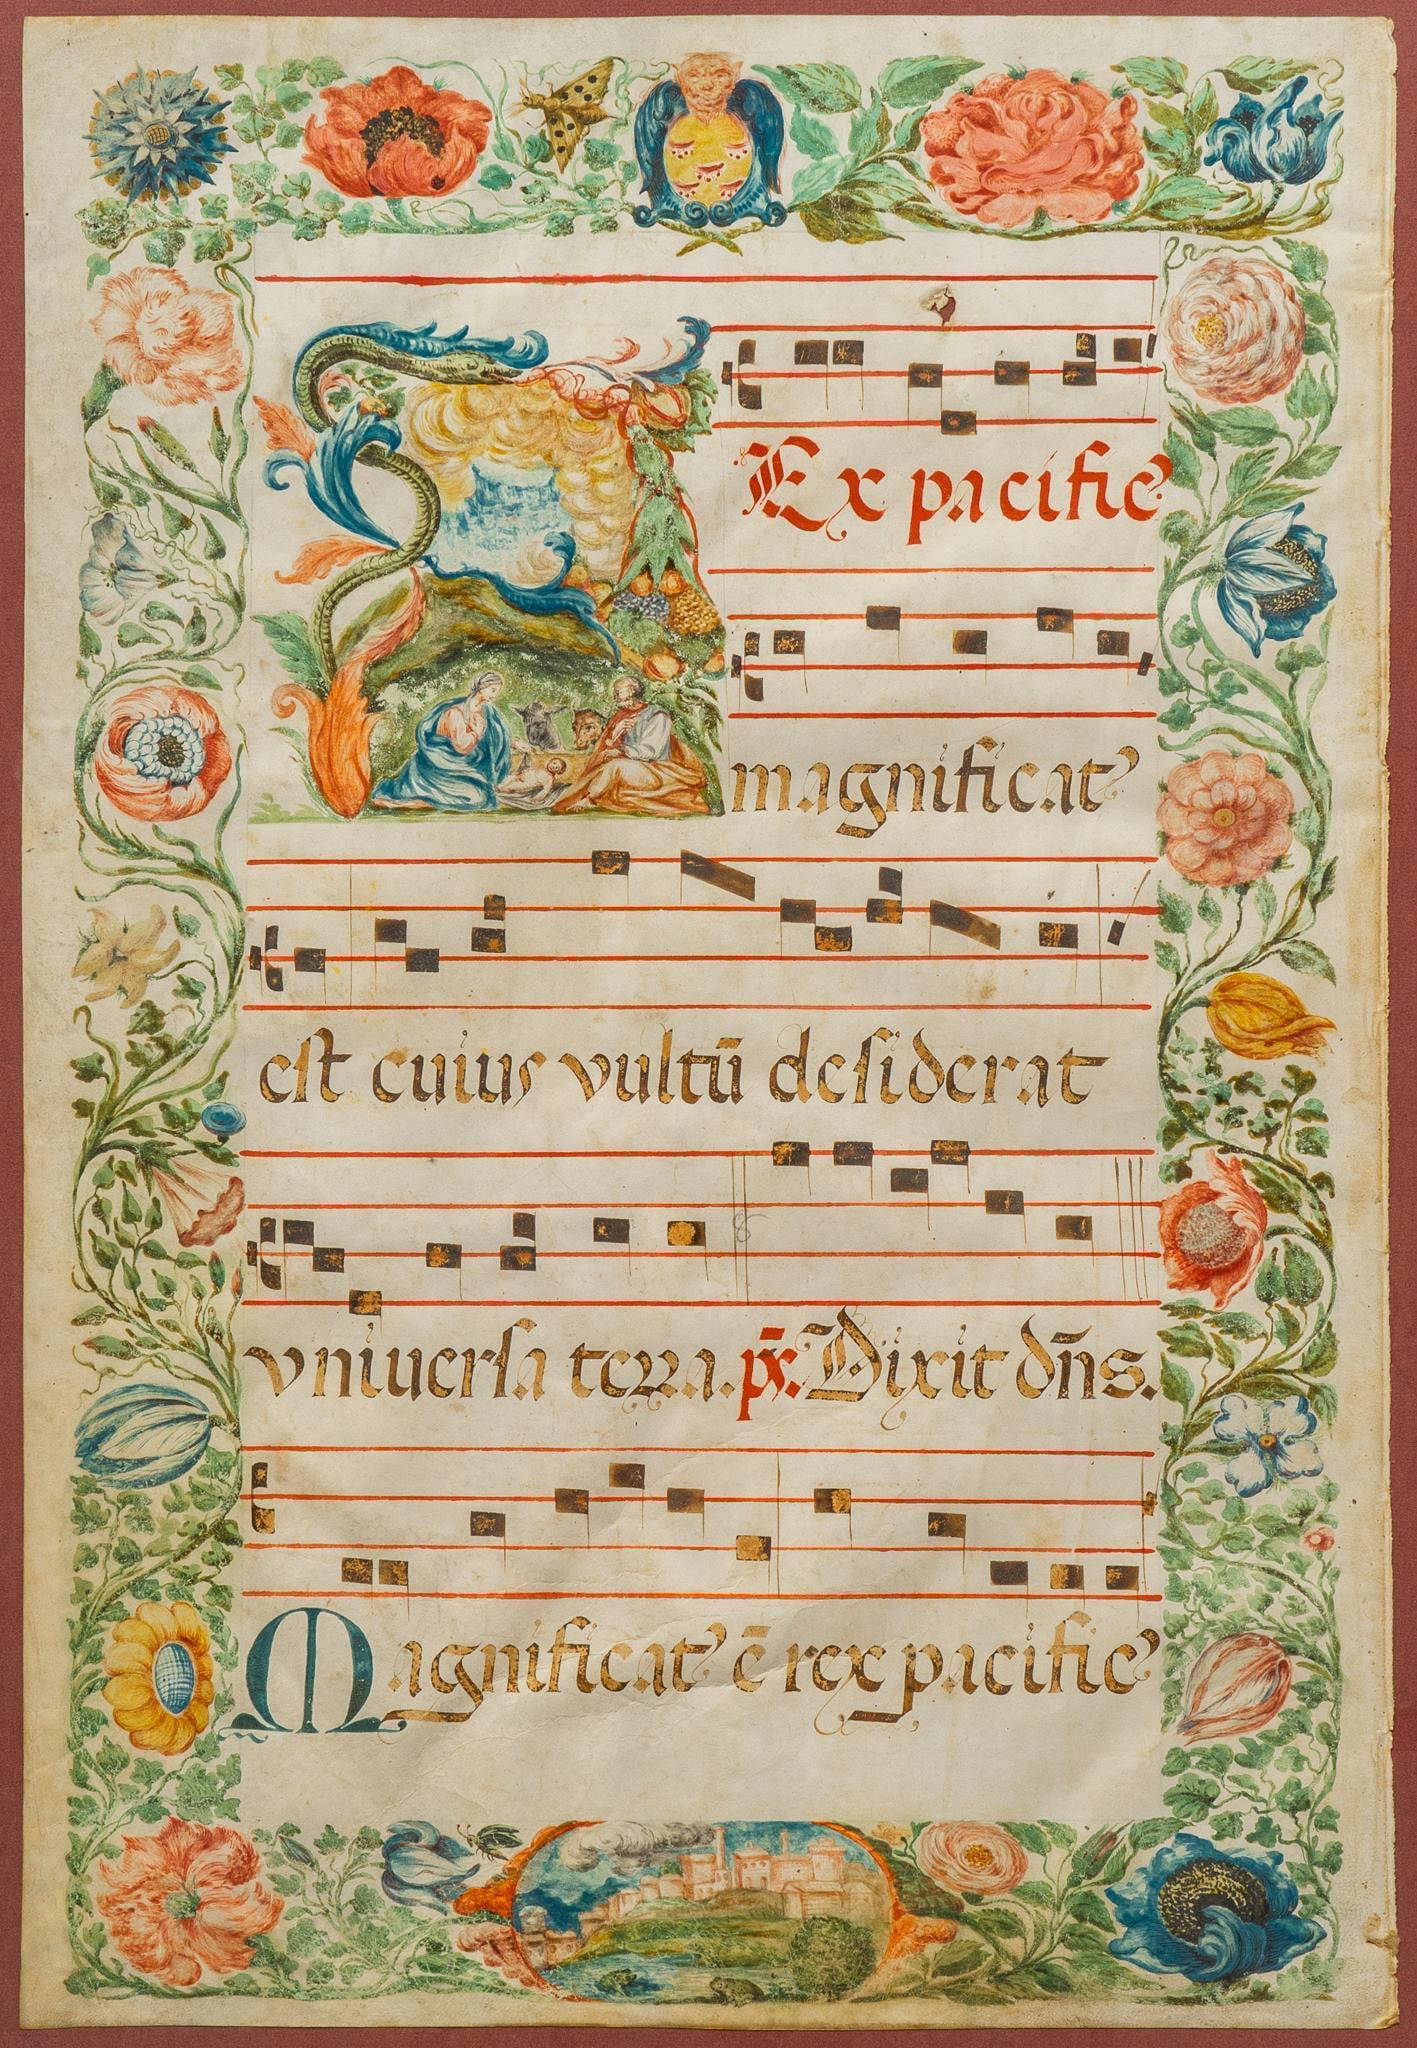 REx pacific9
magnificat9
est cuius vultū desiderat
vniuersa terra. ps. Dixit dn̄s.
Magnificat9 ē rex pacific9